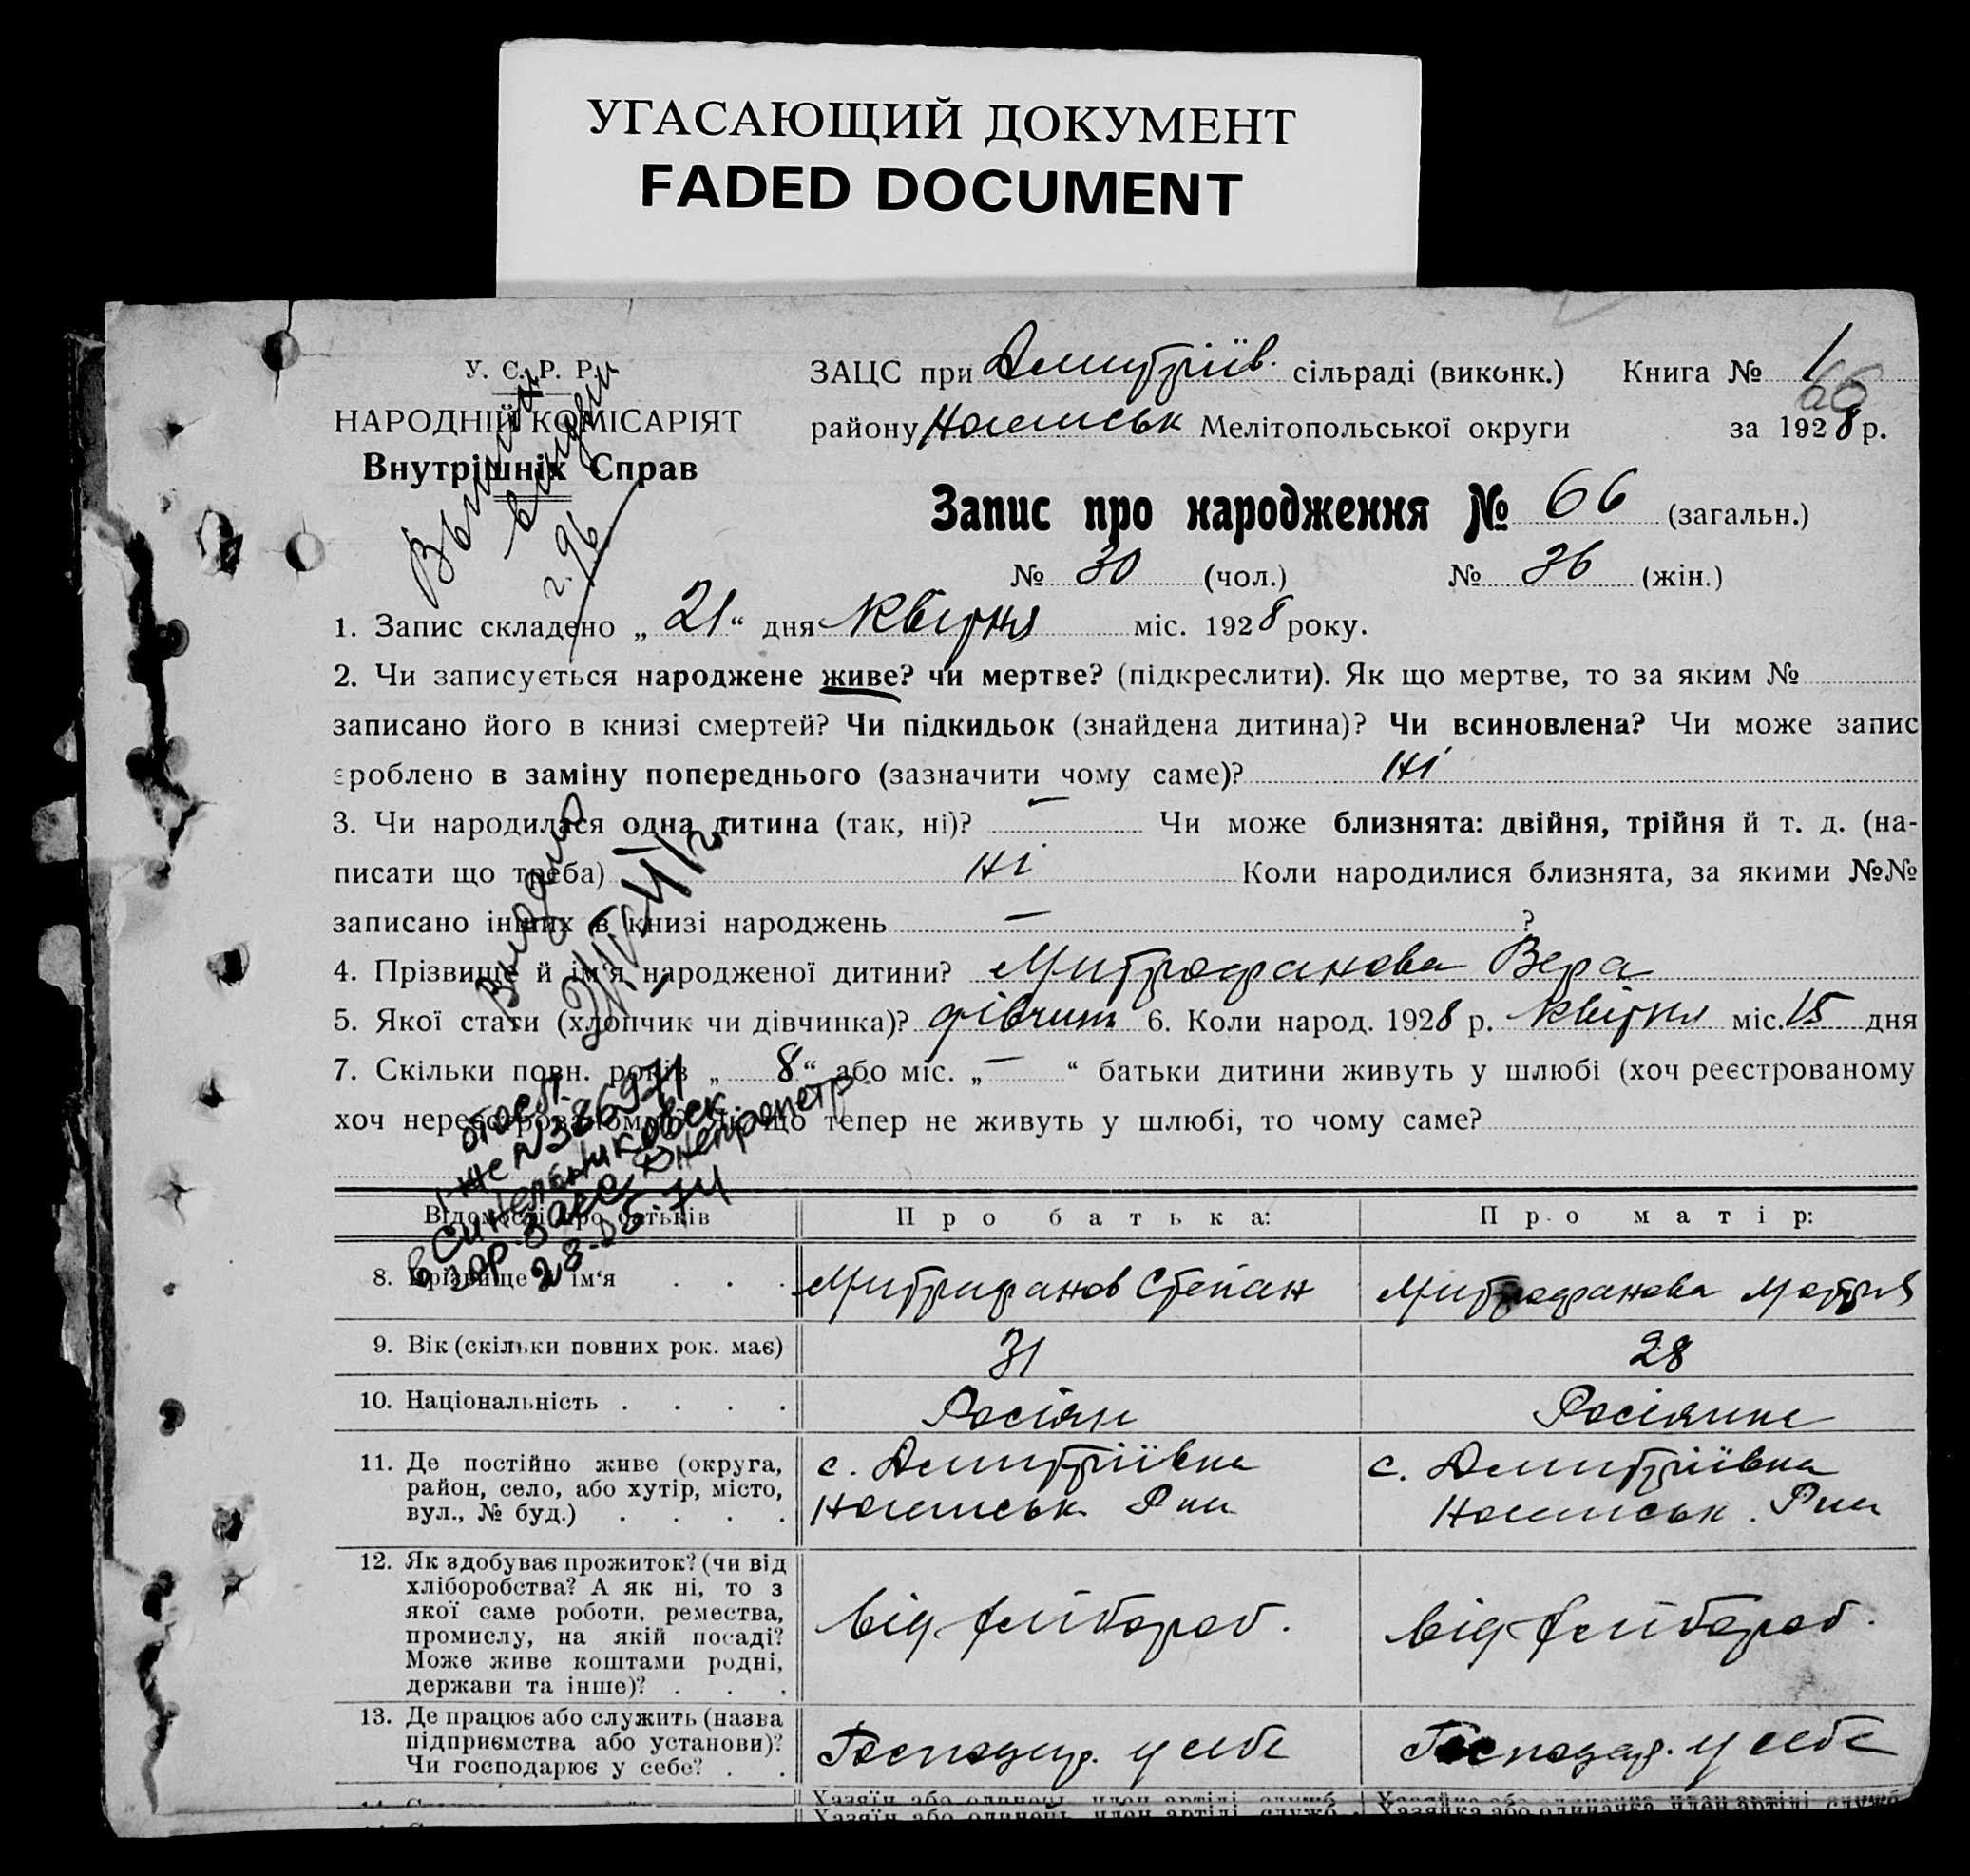 УГАСАЮЩИЙ ДОКУМЕНТ
FADED DOCUMENT
У. С. Р. Р.
НАРОДНІЙ КОМІСАРІЯТ
Внутрішніх Справ
ЗАЦС при Дмитріїв. сільраді (виконк.) Книга № 1
66
району Мелітопольської округи за 1928 р.
Запис про народження № 66 (загальн.)
№ 30 (чол.) № 36 (жін.)
1. Запис складено „ 21 “ дня Квітня міс. 1928 року.
2. Чи записується народжене живе? чи мертве? (підкреслити). Як що мертве, то за яким №
записано його в книзі смертей? Чи підкидьок (знайдена дитина)? Чи всиновлена? Чи може запис
зроблено в заміну попереднього (зазначити чому саме)? Ні
3. Чи народилася одна дитина (так, ні)? — Чи може близнята: двійня, трійня й т. д. (на-
писати що треба) Ні Коли народилися близнята, за якими №№
записано інших в книзі народжень — ?
4. Прізвище й ім‘я народженої дитини? Митрофанова Вера
5. Якої стати (хлопчик чи дівчинка)? дівчит 6. Коли народ. 1928 р. Квітня міс. 15 дня
7. Скільки повн. років „ 8 “ або міс. „ — “ батьки дитини живуть у шлюбі (хоч реєстрованому
хоч нереєстрованому)? Як що тепер не живуть у шлюбі, то чому саме?
Выдано
386971
в Синельниковск
28-05-74
Відомості про батьків Про батька: Про матір:
8. Прізвище й ім‘я . . . Митрифанов Степан Митрофанова Мотря
9. Вік (скільки повних рок. має) 31 28
10. Національність . . . . Росіян Росіянка
11. Де постійно живе (округа, район, село, або хутір, місто, вул., № буд.) . . . .
с. Дмитріївка
с. Дмитріївка
12. Як здобуває прожиток? (чи від хліборобства? А як ні, то з якої саме роботи, ремества, промислу, на якій посаді? Може живе коштами родні, держави та інше)? . . .
від хлібороб.
від хлібороб.
13. Де працює або служить (назва підприємства або установи)? Чи господарює у себе? . .
Господар. у себе
Господар. у себе
Хазяїн або одинець, член артілі, служб.
Хазяйка або одиначка, член артілі, служб